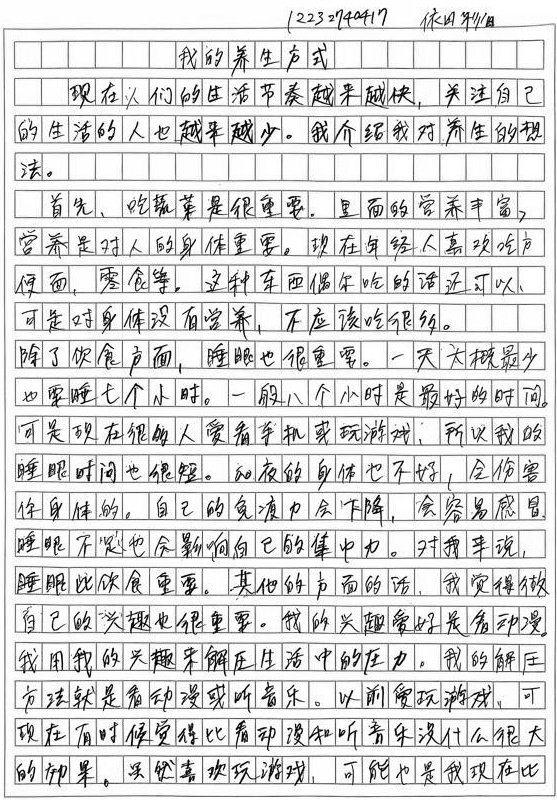 12232740417
我的养生方式
现在人们的生活节奏越来越快，关注自己
的生活的人也越来越少。我介绍我对养生的想
法。
首先，吃蔬菜是很重要。里面的营养丰富，
营养是对人的身体重要。现在年经人喜欢吃方
便面，零食等。这种东西偶尔吃的话还可以，
可是对身体没有营养，不应该吃很多。
除了饮食方面，睡眠也很重要。一天大概最少
也要睡七个小时。一般八个小时是最好的时间。
可是现在很多人爱看手机或玩游戏，所以我的
睡眠时间也很短。夜的身体也不好，会伤害
你身体的。自己的免疫力会下降，会容易感冒
睡眠不足也会影响自己的集中力。对我来说，
睡眠比饮食重要。其他的方面的话，我觉得做
自己的兴趣也很重要。我的兴趣爱好是看动漫。
我用我的兴趣来解压生活中的压力。我的解压
方法就是看动漫或听音乐。以前爱玩游戏，可
现在有时候觉得比看动漫和听音乐没什么很大
的效果。虽然喜欢玩游戏，可能也是我现在比